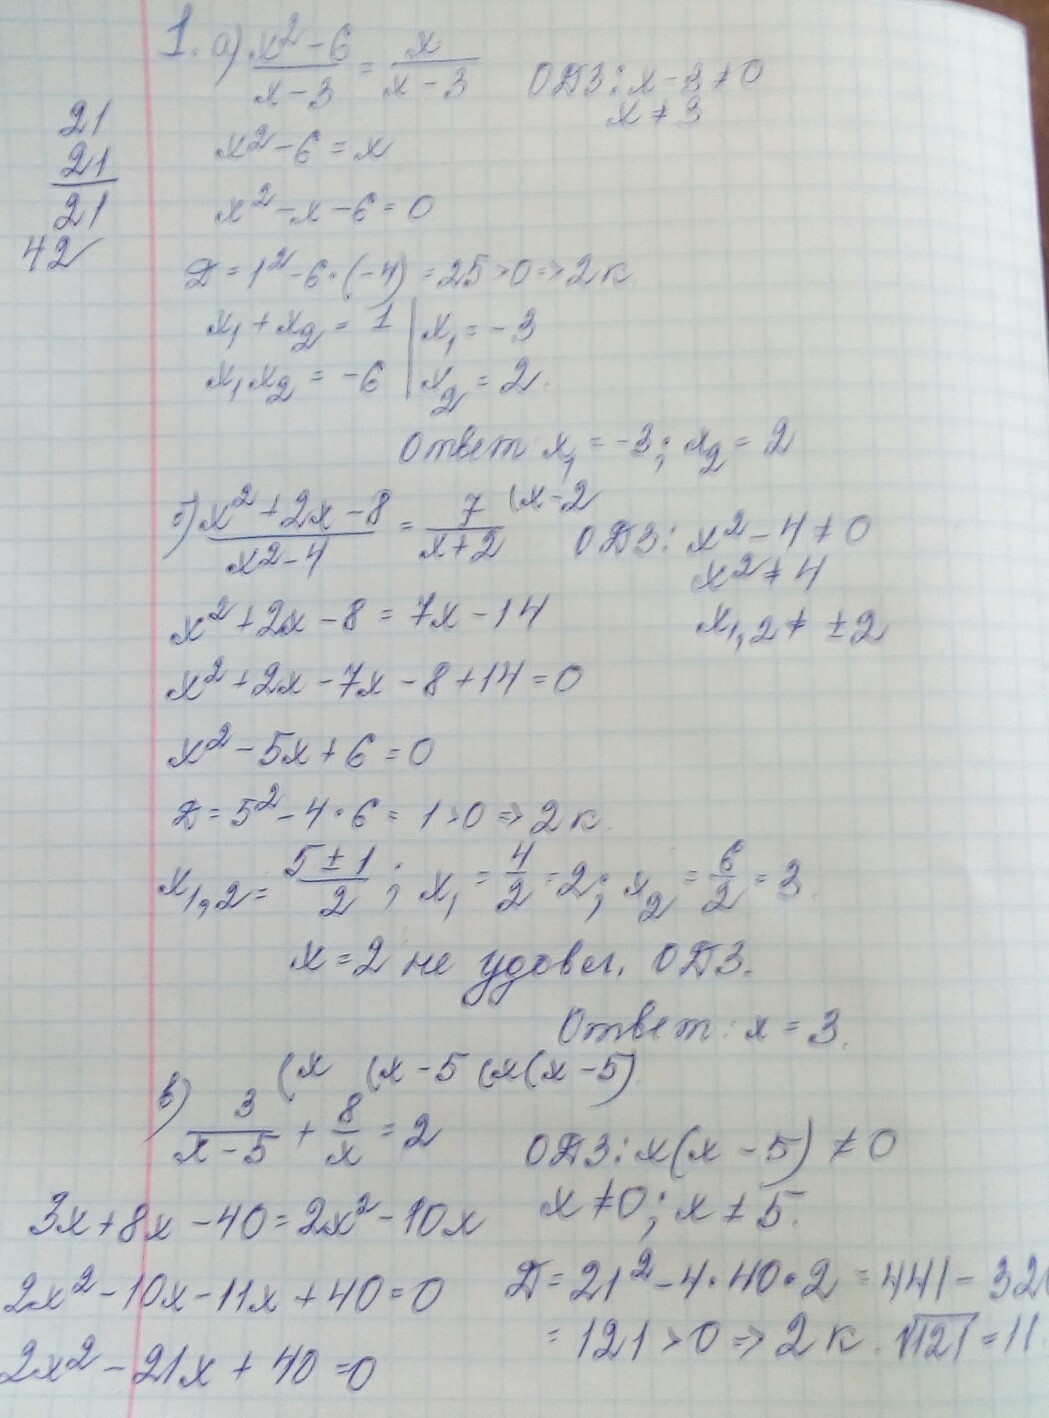 1. а) (x² - 6)/(x - 3) = x/(x - 3) ОДЗ: x - 3 ≠ 0
x ≠ 3
21
21
21
42
x² - 6 = x
x² - x - 6 = 0
Д = 1² - 6·(-4) = 25 > 0 => 2 к.
x₁ + x₂ = 1 | x₁ = -3
x₁ x₂ = -6 | x₂ = 2.
Ответ: x₁ = -3; x₂ = 2
б) (x² + 2x - 8)/(x² - 4) = 7/(x + 2) (x - 2 ОДЗ: x² - 4 ≠ 0
x² ≠ 4
x² + 2x - 8 = 7x - 14 x₁,₂ ≠ ±2
x² + 2x - 7x - 8 + 14 = 0
x² - 5x + 6 = 0
Д = 5² - 4·6 = 1 > 0 => 2 к.
x₁,₂ = (5 ± 1)/2; x₁ = 4/2 = 2; x₂ = 6/2 = 3.
x = 2 не удовл. ОДЗ.
Ответ: x = 3.
в) 3/(x - 5) (x + 8/x (x - 5 = 2 (x(x - 5)
ОДЗ: x(x - 5) ≠ 0
x ≠ 0; x ≠ 5.
3x + 8x - 40 = 2x² - 10x
2x² - 10x - 11x + 40 = 0
2x² - 21x + 40 = 0
Д = 21² - 4·40·2 = 441 - 32
= 121 > 0 => 2 к. √121 = 11